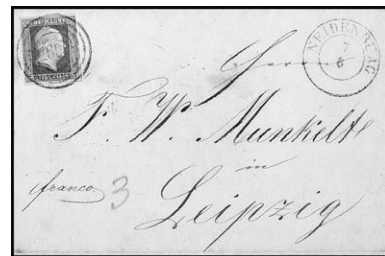 NEIDENBURG
7
6
Herrn
F. W. Munkelt
in
franco 3
Leipzig